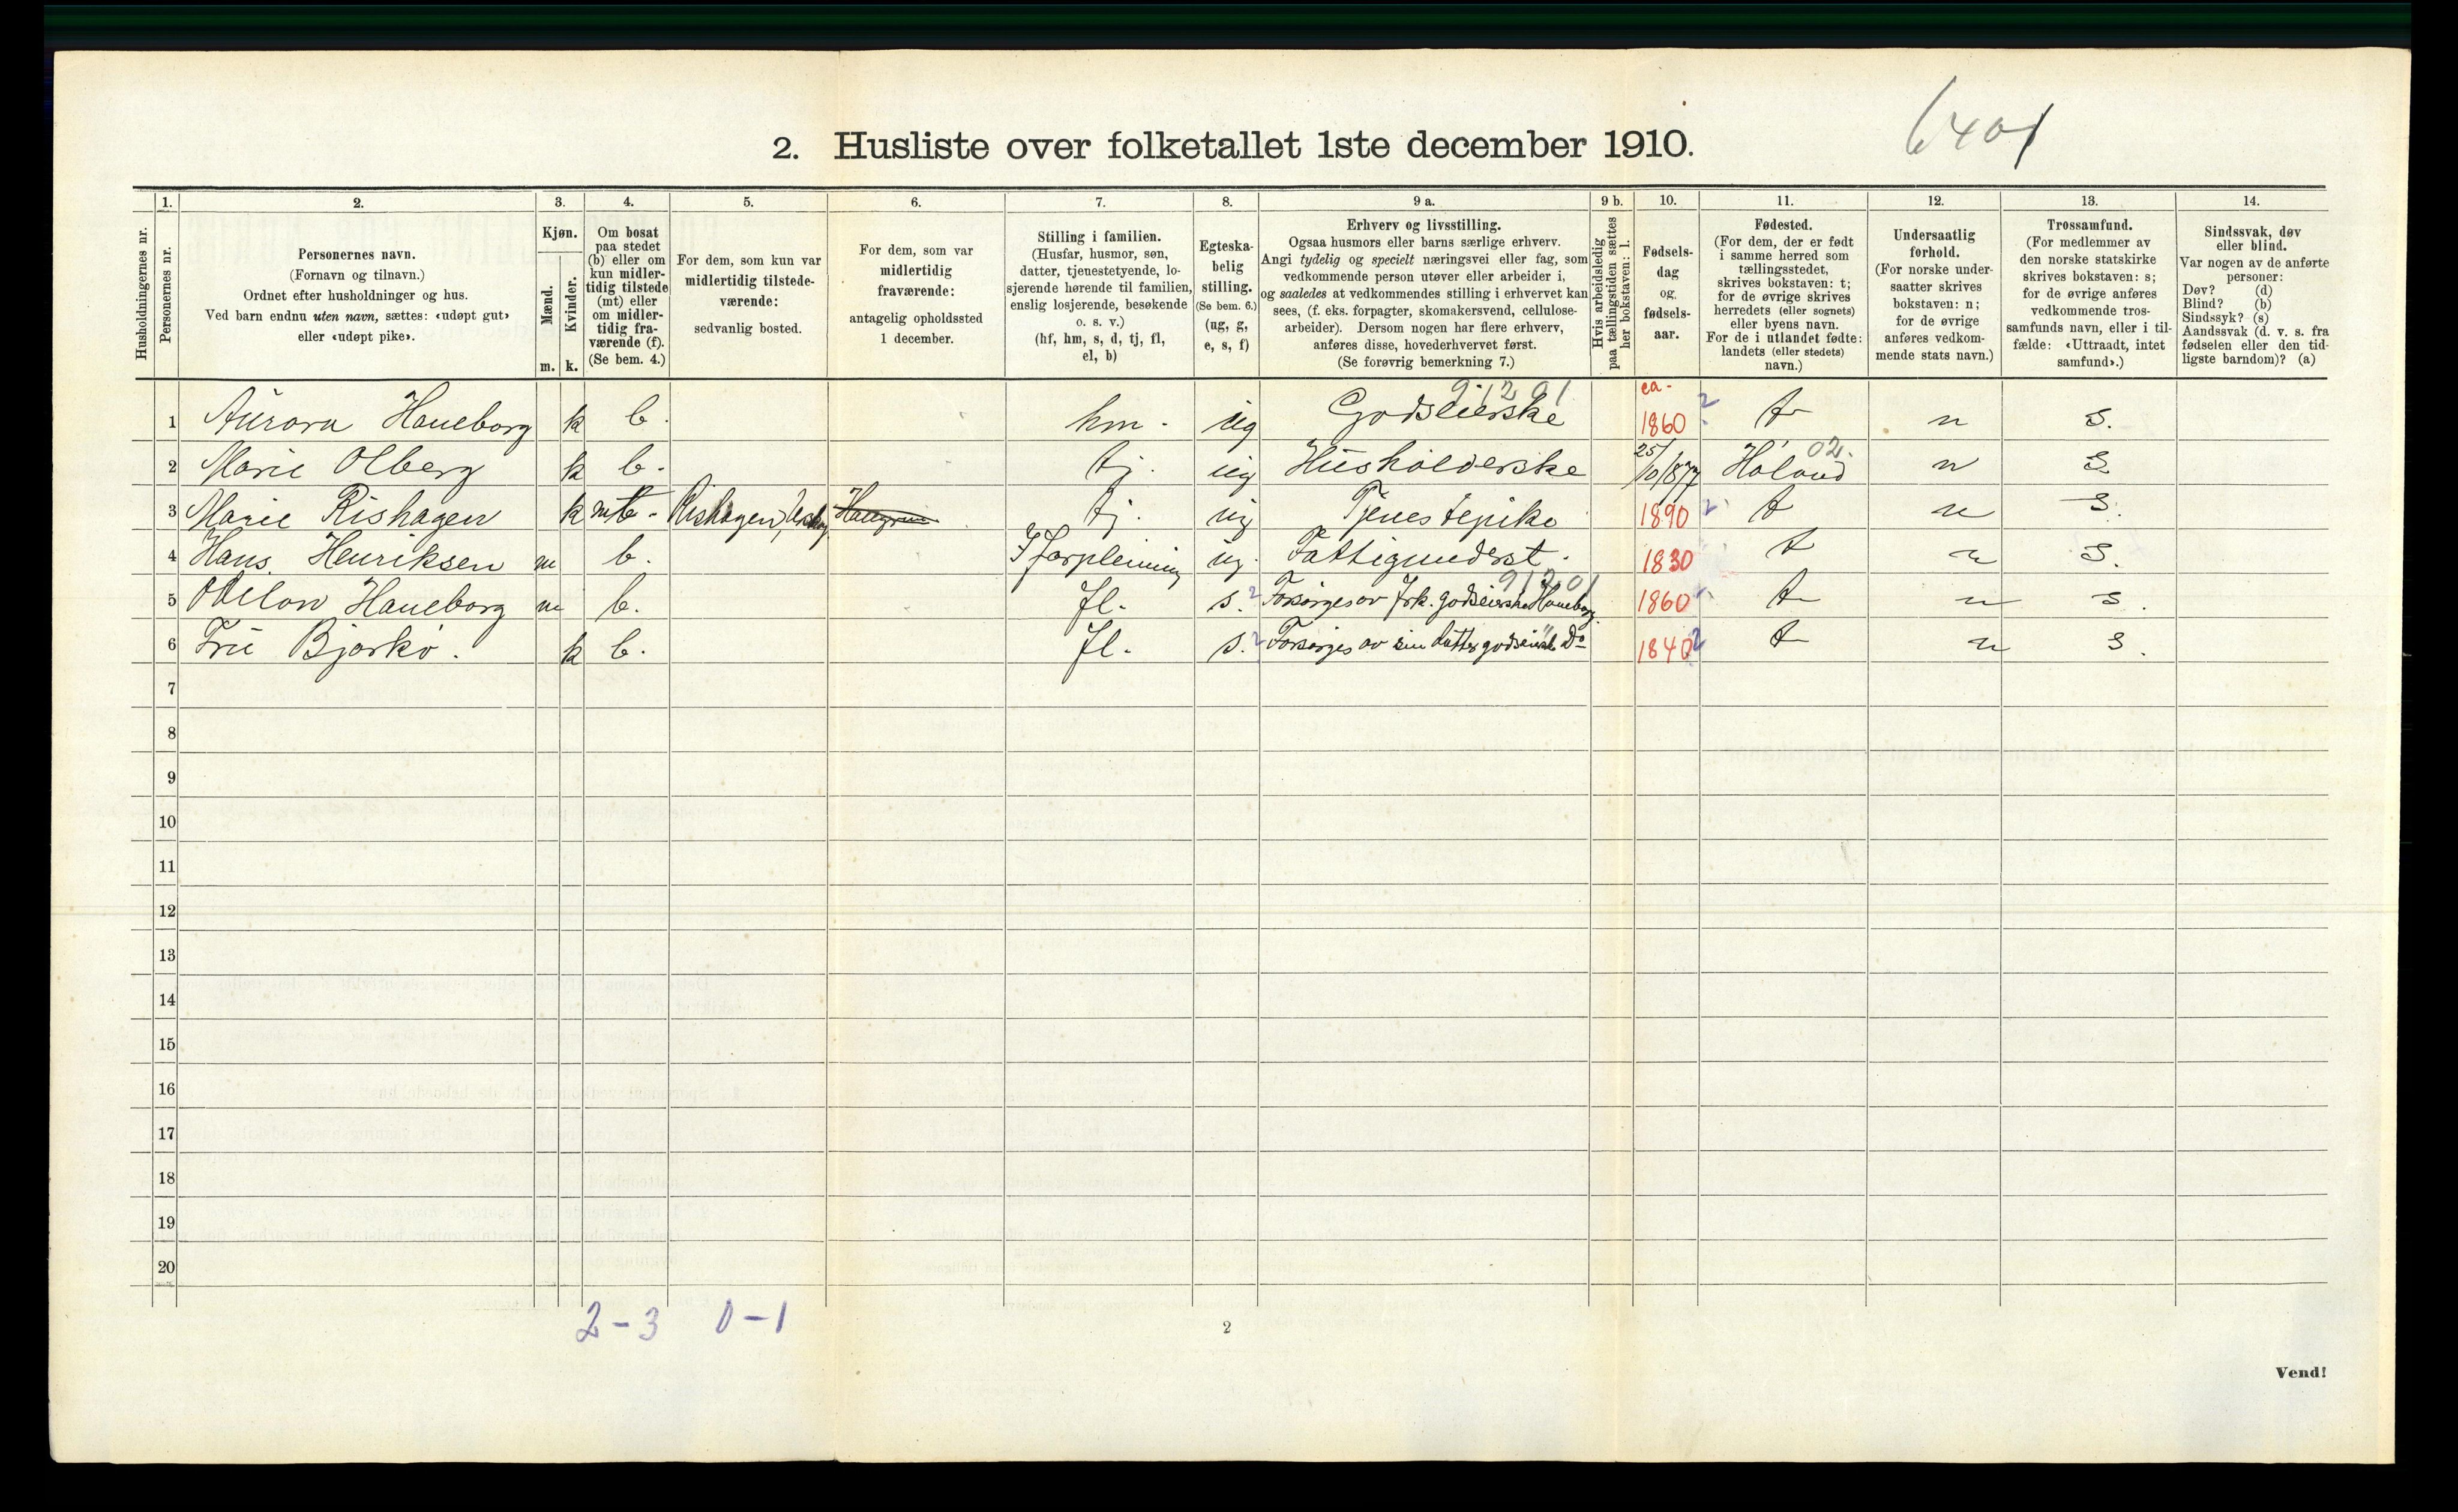 6401
2. Husliste over folketallet 1ste december 1910.
Husholdningernes nr.
1.
Personernes nr.
2.
Personernes navn.
(Fornavn og tilnavn.)
Ordnet efter husholdninger og hus.
Ved barn endnu uten navn, sættes: «udøpt gut»
eller «udøpt pike».
3.
Kjøn.
Mænd.
Kvinder.
m. k.
4.
Om bosat
paa stedet
(b) eller om
kun midler-
tidig tilstede
(mt) eller
om midler-
tidig fra-
værende (f).
(Se bem. 4.)
5.
For dem, som kun var
midlertidig tilstede-
værende:
sedvanlig bosted.
6.
For dem, som var
midlertidig
fraværende:
antagelig opholdssted
1 december.
7.
Stilling i familien.
(Husfar, husmor, søn,
datter, tjenestetyende, lo-
sjerende hørende til familien,
enslig losjerende, besøkende
o. s. v.)
(hf, hm, s, d, tj, fl,
el, b)
8.
Egteska-
belig
stilling.
(Se bem. 6.)
(ug, g,
e, s, f)
9 a.
Erhverv og livsstilling.
Ogsaa husmors eller barns særlige erhverv.
Angi tydelig og specielt næringsvei eller fag, som
vedkommende person utøver eller arbeider i,
og saaledes at vedkommendes stilling i erhvervet kan
sees, (f. eks. forpagter, skomakersvend, cellulose-
arbeider). Dersom nogen har flere erhverv,
anføres disse, hovederhvervet først.
(Se forøvrig bemerkning 7.)
9 b.
Hvis arbeidsledig
paa tællingstiden sættes
her bokstaven: l.
10.
Fødsels-
dag
og
fødsels-
aar.
11.
Fødested.
(For dem, der er født
i samme herred som
tællingsstedet,
skrives bokstaven: t;
for de øvrige skrives
herredets (eller sognets)
eller byens navn.
For de i utlandet fødte:
landets (eller stedets)
navn.)
12.
Undersaatlig
forhold.
(For norske under-
saatter skrives
bokstaven: n;
for de øvrige
anføres vedkom-
mende stats navn.)
13.
Trossamfund.
(For medlemmer av
den norske statskirke
skrives bokstaven: s;
for de øvrige anføres
vedkommende tros-
samfunds navn, eller i til-
fælde: «Uttraadt, intet
samfund».)
14.
Sindssvak, døv
eller blind.
Var nogen av de anførte
personer:
Døv? (d)
Blind? (b)
Sindssyk? (s)
Aandssvak (d. v. s. fra
fødselen eller den tid-
ligste barndom)? (a)
9.1201 ca.
1 Aurora Haneborg k b. hm. ug Godseierske 1860 ? t n s.
02.
2 Marie Olberg k b. tj. ug Husholderske 25/10 1877 Høland n s.
3 Marie Rishagen k mt. Rishagen, tj. ug Tjenestepike 1890 ? t n s.
4 Hans Henriksen m b. I forpleining ug. Fattigunderst. 1830 t n s.
91201
5 Haneborg m b. fl. s. ? Forsørges av frk. godseierske Haneborg 1860 t n s.
6 Fru Bjørkø. k b. fl. s. ? Forsørges av sin datter godseiersk do 1840 ? t n s.
7
8
9
10
11
12
13
14
15
16
17
18
19
20
2-3 0-1
2
Vend!